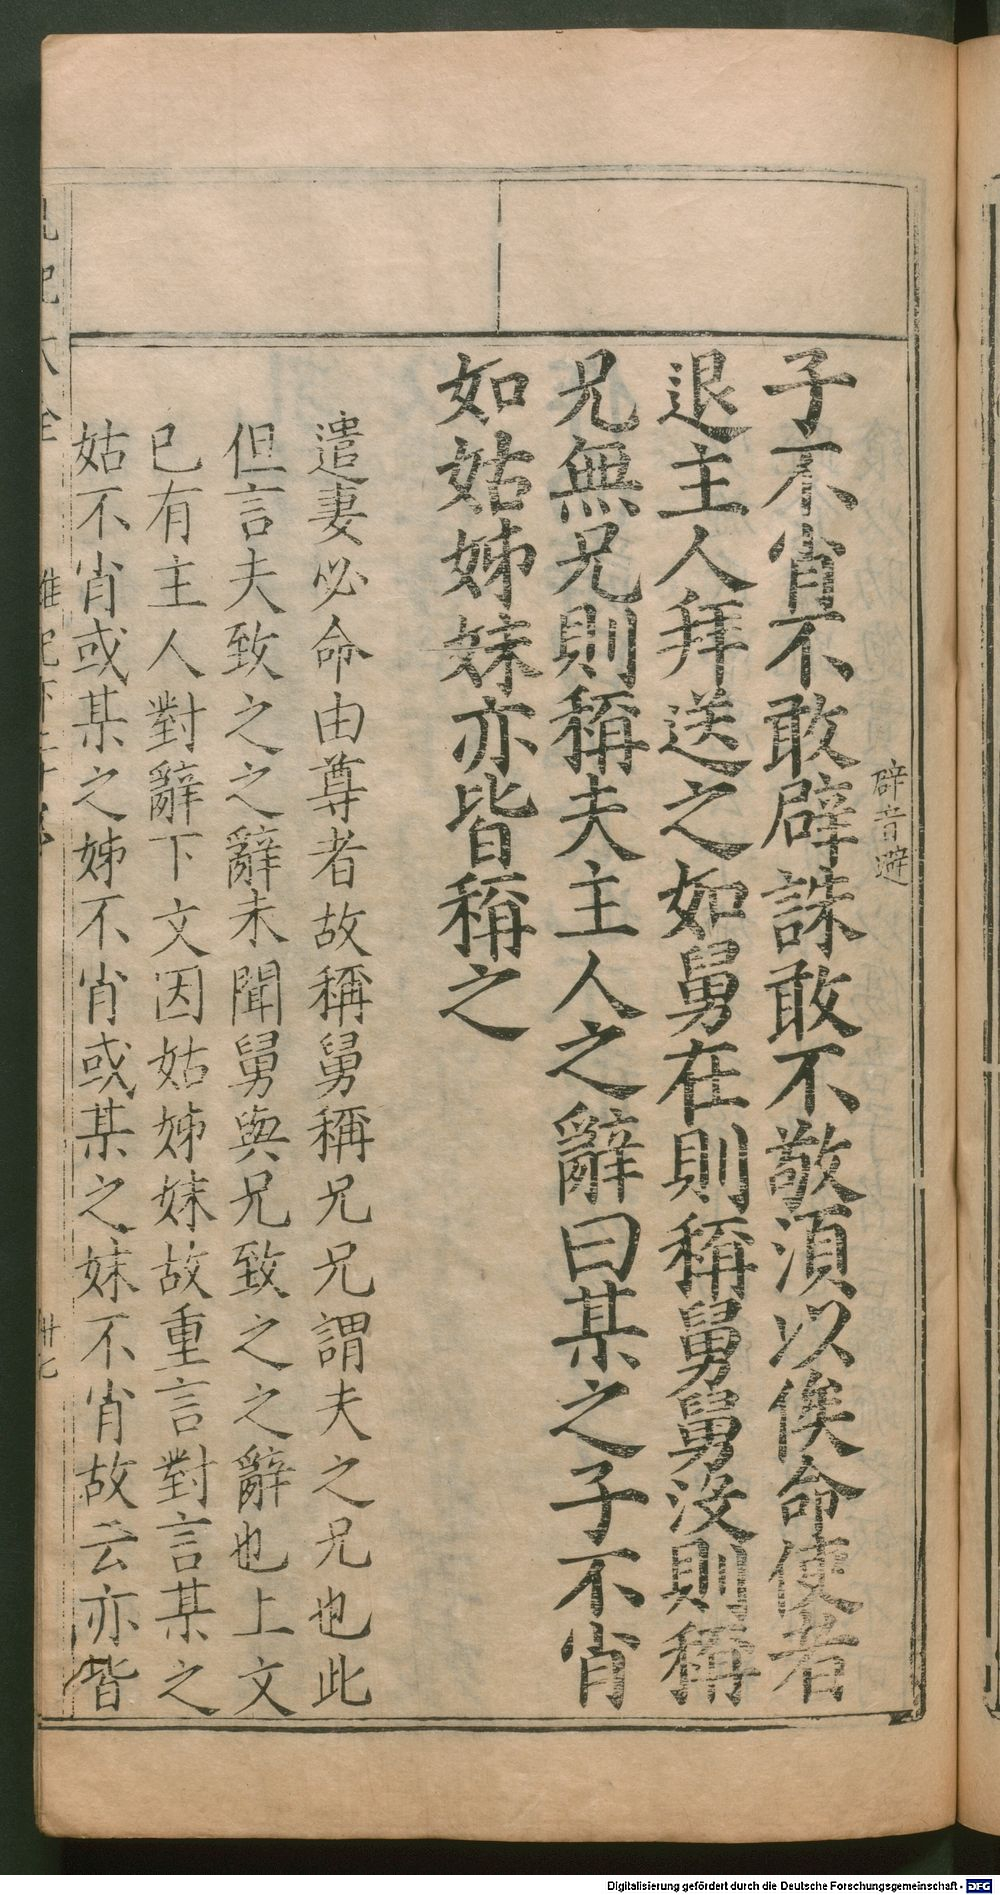 辟音避
子不肖不敢辟誅敢不敬須以俟命使者
退主人拜送之如舅在則稱舅舅沒則稱
兄無兄則稱夫主人之辭曰某之子不肖
如姑姊妹亦皆稱之
遣妻必命由尊者故稱舅稱兄兄謂夫之兄也此
但言夫致之之辭未聞舅與兄致之之辭也上文
已有主人對辭下文因姑姊妹故重言對言某之
姑不肖或某之姊不肖或某之妹不肖故云亦皆
Digitalisierung gefördert durch die Deutsche Forschungsgemeinschaft - DFG